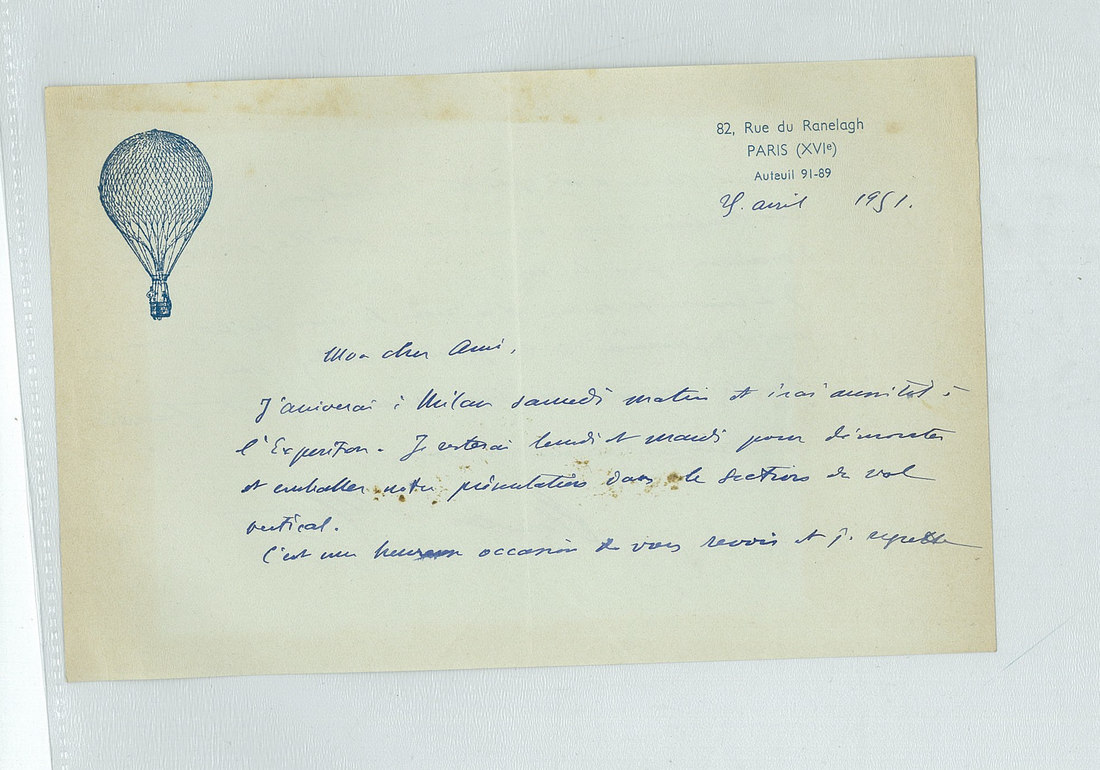 82, Rue du Ranelagh
PARIS (XVIe)
Auteuil 91-89
25. avril 1951.
Mon cher Ami,
J'arriverai à Milan samedi matin et irai aussitôt à
l'Exposition. Je resterai lundi et mardi pour démonter
et emballer notre présentation dans la section de vol
vertical.
C'est une heureuse occasion de vous revoir et je regrette